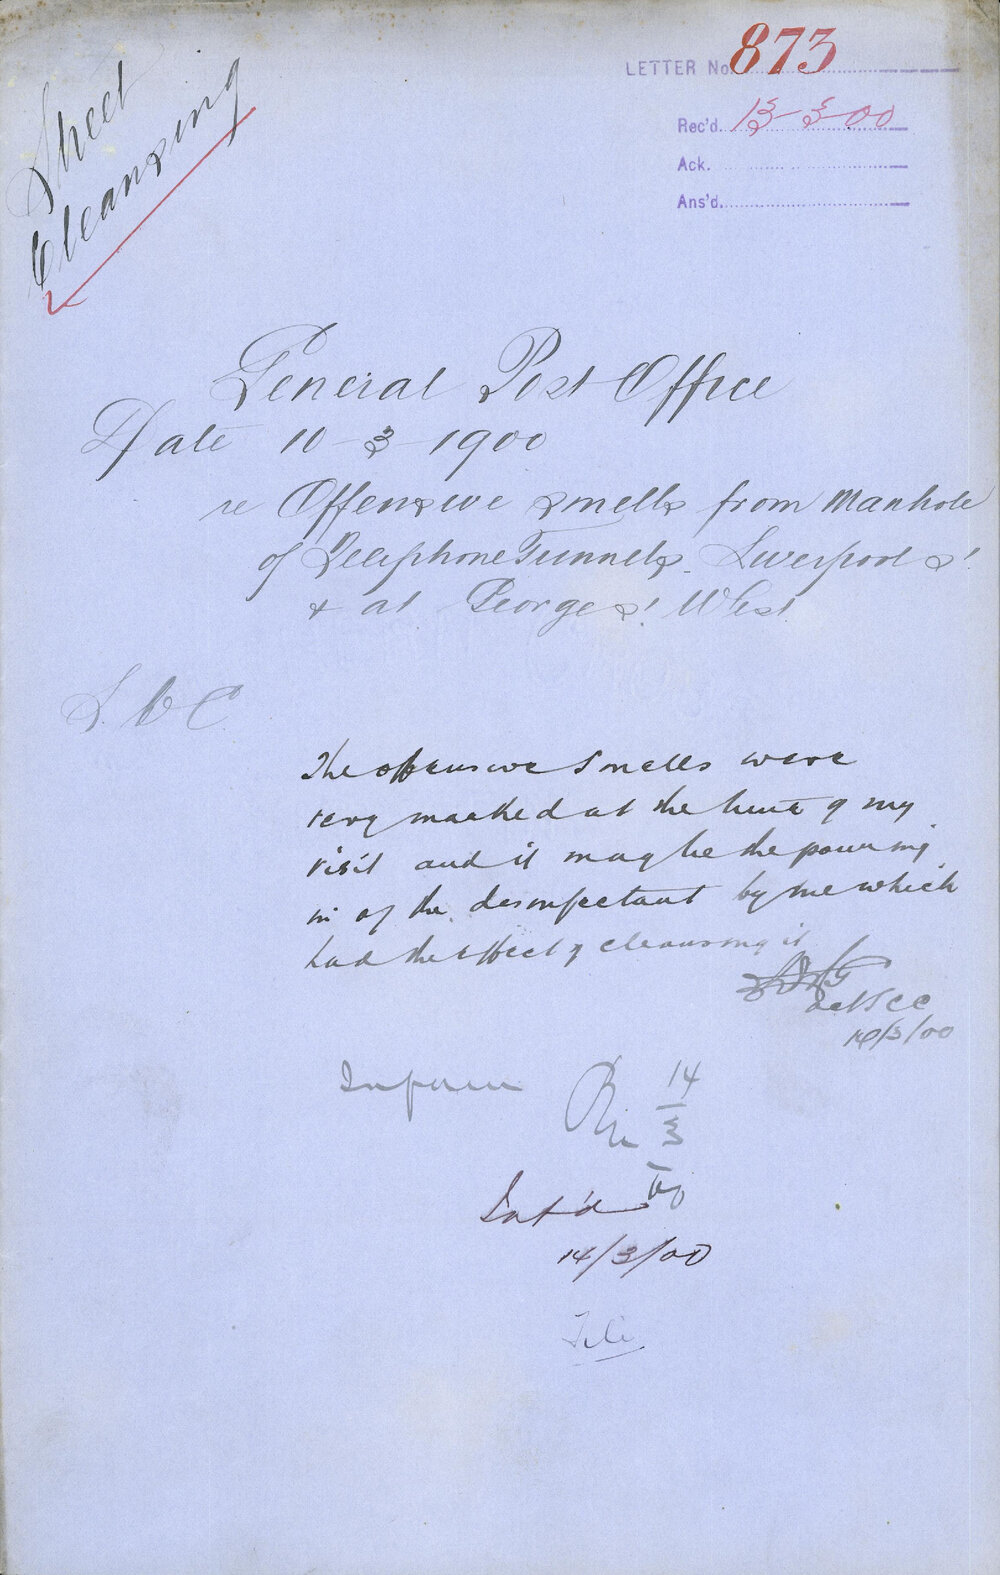 Street
Cleansing
LETTER No. 873
Rec'd. 13-3-00
Ack.
Ans'd.
General Post Office
Date 10-3-1900
re Offensive smells from Manhole
of Telephone Tunnels. Liverpool St
& at George St. West
The offensive smells were
very marked at the time of my
visit and it may be the pouring
in of the disinfectant by me which
had the effect of cleansing it
14/3/00
Inform
14
3
00
Inf'd
14/3/00
File